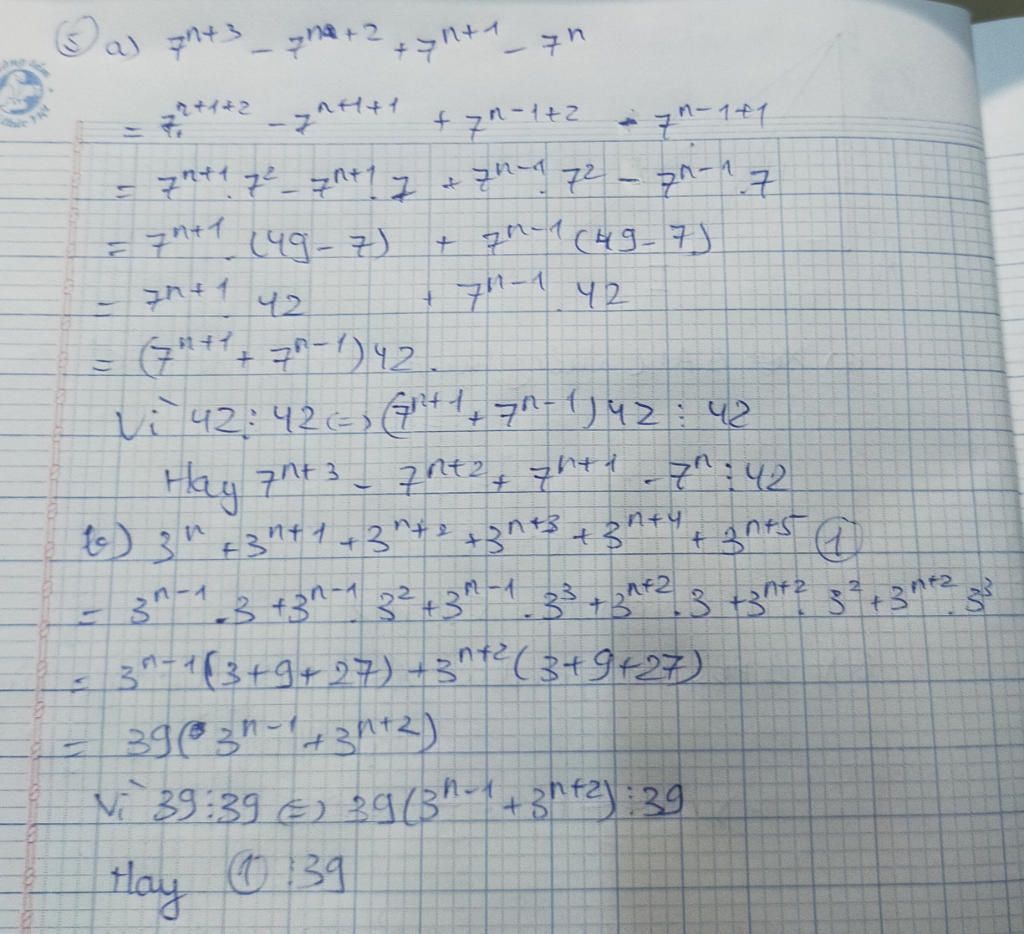 ⑤ a) 7ⁿ⁺³ - 7ⁿ⁺² + 7ⁿ⁺¹ - 7ⁿ
= 7ⁿ⁺¹⁺² - 7ⁿ⁺¹⁺¹ + 7ⁿ⁻¹⁺² - 7ⁿ⁻¹⁺¹
= 7ⁿ⁺¹.7² - 7ⁿ⁺¹.7 + 7ⁿ⁻¹.7² - 7ⁿ⁻¹.7
= 7ⁿ⁺¹.(49-7) + 7ⁿ⁻¹(49-7)
= 7ⁿ⁺¹.42 + 7ⁿ⁻¹.42
= (7ⁿ⁺¹ + 7ⁿ⁻¹)42.
Vì 42⋮42 <=> (7ⁿ⁺¹ + 7ⁿ⁻¹)42 ⋮ 42
Hay 7ⁿ⁺³ - 7ⁿ⁺² + 7ⁿ⁺¹ - 7ⁿ ⋮ 42
b) 3ⁿ + 3ⁿ⁺¹ + 3ⁿ⁺² + 3ⁿ⁺³ + 3ⁿ⁺⁴ + 3ⁿ⁺⁵ ①
= 3ⁿ⁻¹.3 + 3ⁿ⁻¹.3² + 3ⁿ⁻¹.3³ + 3ⁿ⁺².3 + 3ⁿ⁺².3² + 3ⁿ⁺².3³
= 3ⁿ⁻¹(3+9+27) + 3ⁿ⁺²(3+9+27)
= 39(3ⁿ⁻¹ + 3ⁿ⁺²)
Vì 39⋮39 <=> 39(3ⁿ⁻¹ + 3ⁿ⁺²)⋮39
Hay ① ⋮39